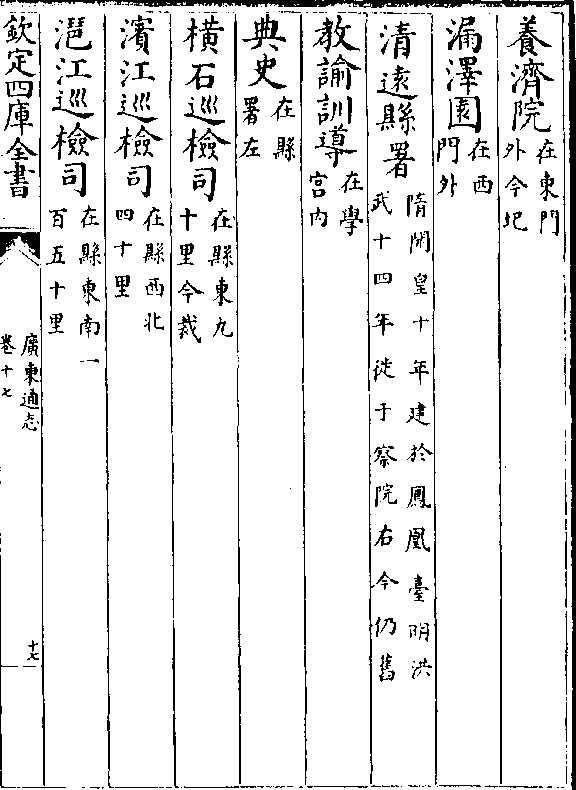 養濟院在東門外今圯
漏澤園在西門外
清逺縣署隋開皇十年建於鳳凰臺明洪武十四年徙于察院右今仍舊
教諭訓導在學宫内
典史在縣署左
橫石巡檢司在縣東九十里今裁
濱江巡檢司在縣西北四十里
滘江巡檢司在縣東南一百五十里
欽定四庫全書
廣東通志
卷十七
十七